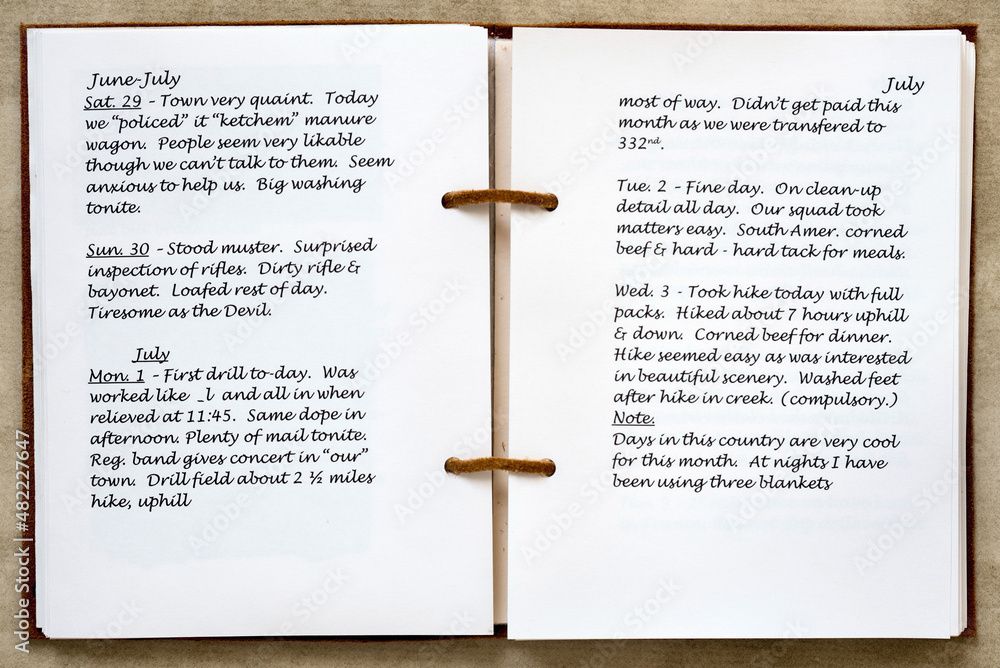 June-July
Sat. 29 - Town very quaint. Today
we "policed" it "ketchem" manure
wagon. People seem very likable
though we can't talk to them. Seem
anxious to help us. Big washing
tonite.
Sun. 30 - Stood muster. Surprised
inspection of rifles. Dirty rifle &
bayonet. Loafed rest of day.
Tiresome as the Devil.
July
Mon. 1 - First drill to-day. Was
worked like _l and all in when
relieved at 11:45. Same dope in
afternoon. Plenty of mail tonite.
Reg. band gives concert in "our"
town. Drill field about 2 ½ miles
hike, uphill
July
most of way. Didn't get paid this
month as we were transfered to
332nd.
Tue. 2 - Fine day. On clean-up
detail all day. Our squad took
matters easy. South Amer. corned
beef & hard - hard tack for meals.
Wed. 3 - Took hike today with full
packs. Hiked about 7 hours uphill
& down. Corned beef for dinner.
Hike seemed easy as was interested
in beautiful scenery. Washed feet
after hike in creek. (compulsory.)
Note.
Days in this country are very cool
for this month. At nights I have
been using three blankets
Adobe Stock | #482227647